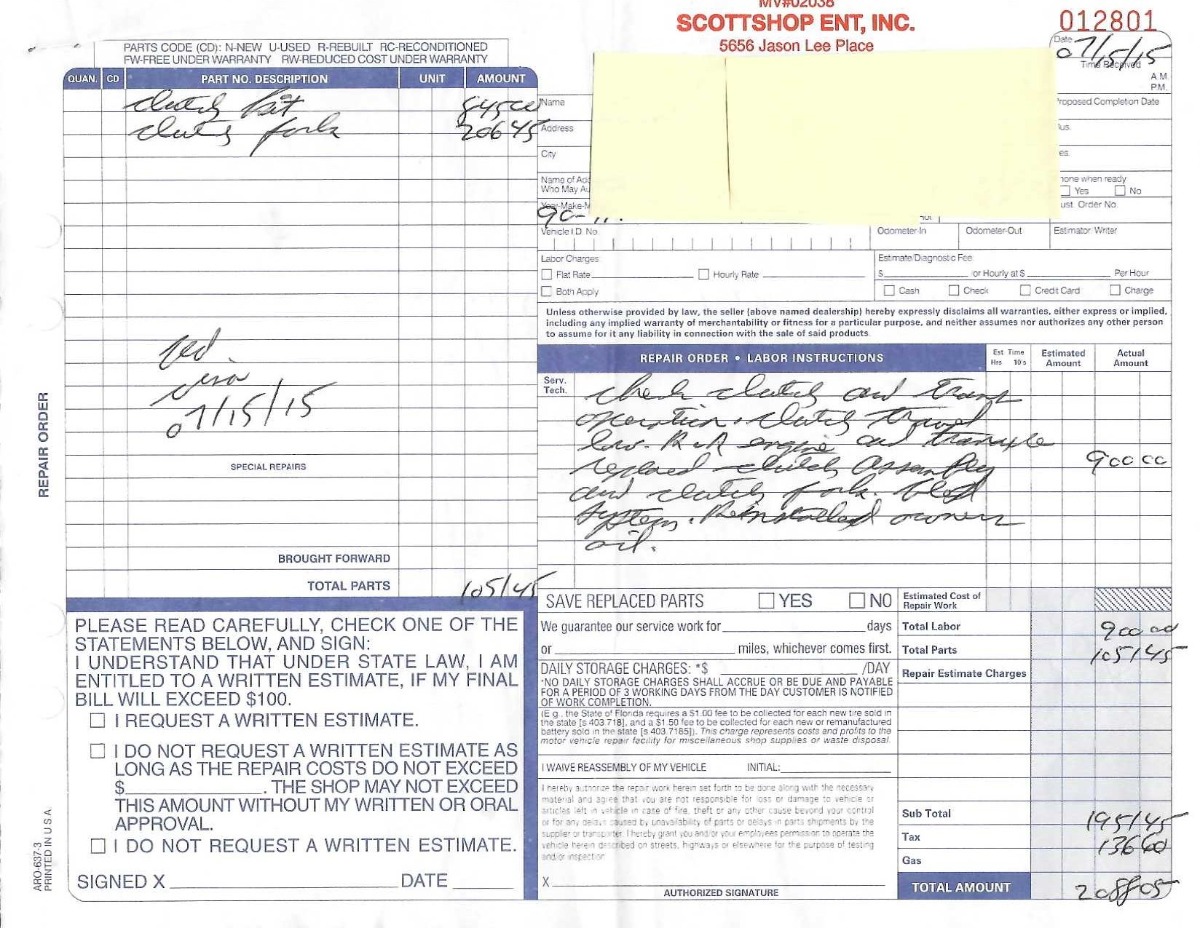 MV#02038
SCOTTSHOP ENT, INC.
5656 Jason Lee Place
012801
Date
07/15/15
Time Received
A.M
P.M.
PARTS CODE (CD): N-NEW U-USED R-REBUILT RC-RECONDITIONED
FW-FREE UNDER WARRANTY RW-REDUCED COST UNDER WARRANTY
QUAN. CD PART NO. DESCRIPTION UNIT AMOUNT
clutch kit 845 00
clutch fork 206 45
07/15/15
SPECIAL REPAIRS
BROUGHT FORWARD
TOTAL PARTS 1051 45
REPAIR ORDER
Name
Address
City
Name of
Who May
Proposed Completion Date
when ready
Yes No
Order No.
90-
Vehicle I.D. No
Odometer-In Odometer-Out Estimator Writer
Labor Charges
Flat Rate Hourly Rate
Both Apply
Estimate/Diagnostic Fee
$ or Hourly at $ Per Hour
Cash Check Credit Card Charge
Unless otherwise provided by law, the seller (above named dealership) hereby expressly disclaims all warranties, either express or implied,
including any implied warranty of merchantability or fitness for a particular purpose, and neither assumes nor authorizes any other person
to assume for it any liability in connection with the sale of said products
REPAIR ORDER • LABOR INSTRUCTIONS
Est Time
Hrs 10's
Estimated
Amount
Actual
Amount
Serv.
Tech.
check clutch and trans
operation. clutch travel
low. R & R engine and transaxle
replaced clutch Assembly 900 00
and clutch fork. bled
system. Reinstalled owners
oil.
PLEASE READ CAREFULLY, CHECK ONE OF THE
STATEMENTS BELOW, AND SIGN:
I UNDERSTAND THAT UNDER STATE LAW, I AM
ENTITLED TO A WRITTEN ESTIMATE, IF MY FINAL
BILL WILL EXCEED $100.
I REQUEST A WRITTEN ESTIMATE.
I DO NOT REQUEST A WRITTEN ESTIMATE AS
LONG AS THE REPAIR COSTS DO NOT EXCEED
$ . THE SHOP MAY NOT EXCEED
THIS AMOUNT WITHOUT MY WRITTEN OR ORAL
APPROVAL.
I DO NOT REQUEST A WRITTEN ESTIMATE.
SIGNED X DATE
ARO-637-3
PRINTED IN U S A
SAVE REPLACED PARTS YES NO
We guarantee our service work for days
or miles, whichever comes first.
DAILY STORAGE CHARGES: *$ /DAY
*NO DAILY STORAGE CHARGES SHALL ACCRUE OR BE DUE AND PAYABLE
FOR A PERIOD OF 3 WORKING DAYS FROM THE DAY CUSTOMER IS NOTIFIED
OF WORK COMPLETION.
(E g , the State of Florida requires a $1.00 fee to be collected for each new tire sold in
the state [s 403.718], and a $1.50 fee to be collected for each new or remanufactured
battery sold in the state [s 403.7185]). This charge represents costs and profits to the
motor vehicle repair facility for miscellaneous shop supplies or waste disposal.
I WAIVE REASSEMBLY OF MY VEHICLE INITIAL:
I hereby authorize the repair work herein set forth to be done along with the necessary
material and agree that you are not responsible for loss or damage to vehicle or
articles left in vehicle in case of fire, theft or any other cause beyond your control
or for any delays caused by unavailability of parts or delays in parts shipments by the
supplier or transporter. I hereby grant you and/or your employees permission to operate the
vehicle herein described on streets, highways or elsewhere for the purpose of testing
and/or inspection
X
AUTHORIZED SIGNATURE
Estimated Cost of
Repair Work
Total Labor 900 00
Total Parts 1051 45
Repair Estimate Charges
Sub Total 1951 45
Tax 136 60
Gas
TOTAL AMOUNT 2088 05